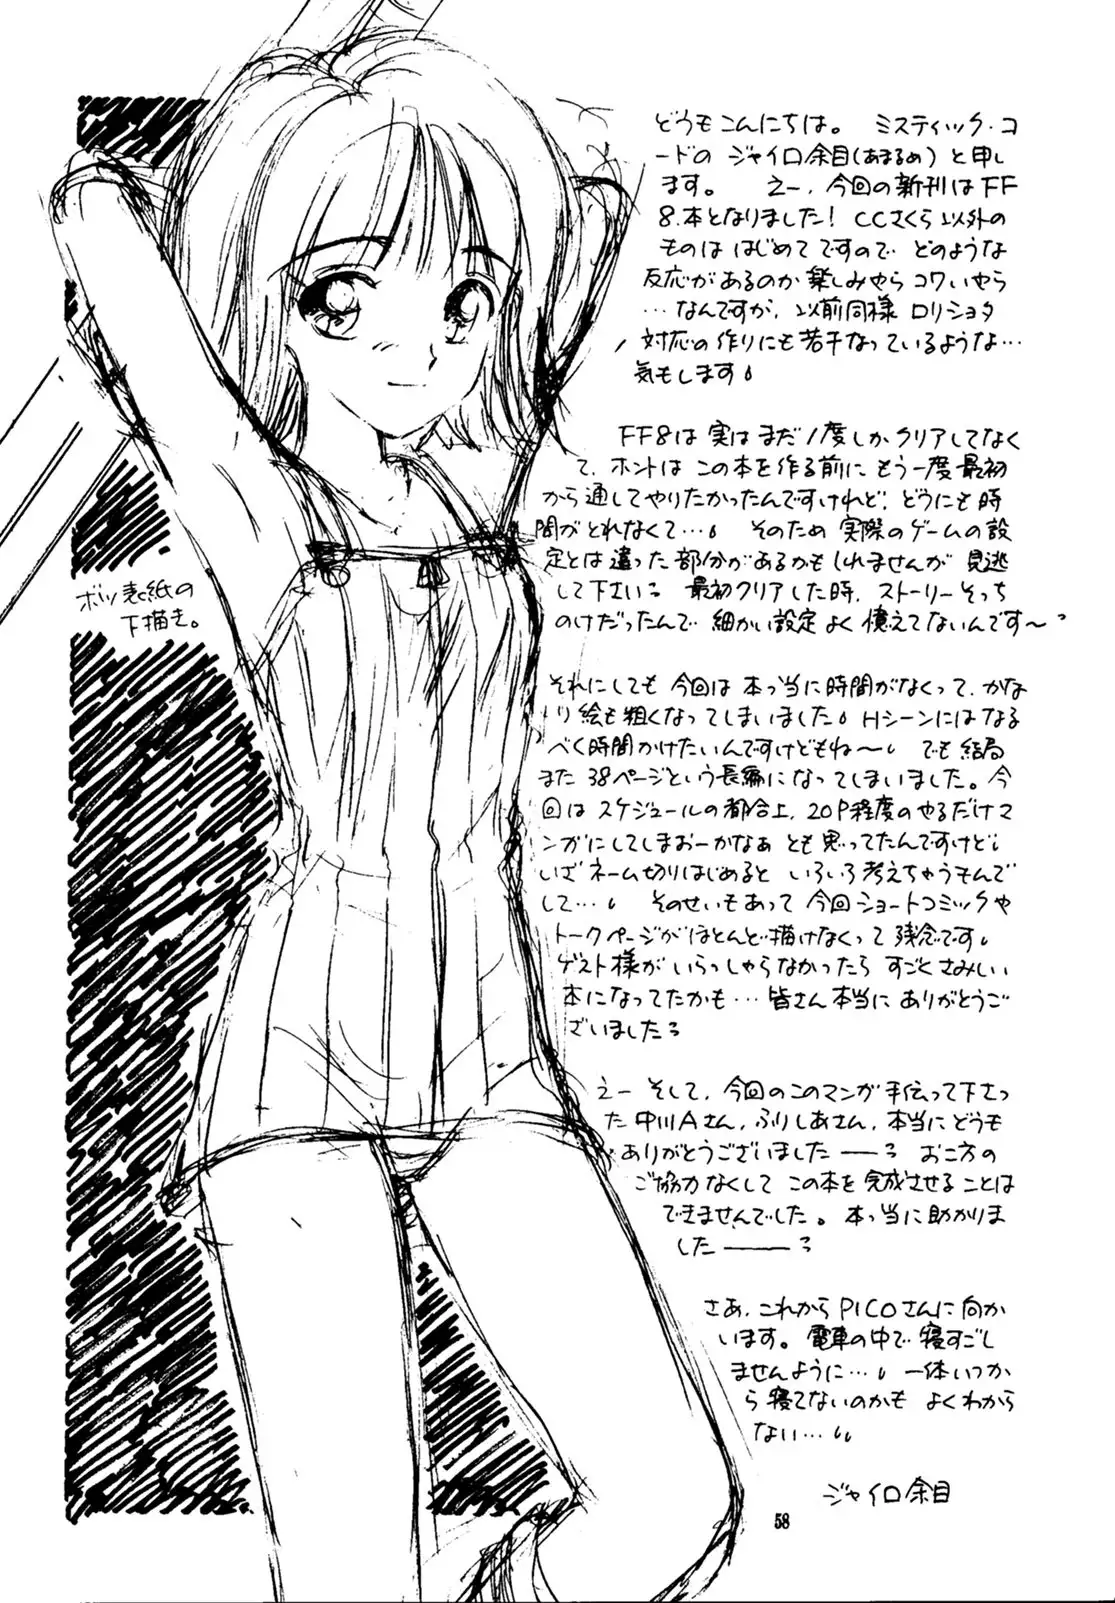 どうもこんにちは。 ミスティック・コ
ードの ジャイロ余目(あまるめ)と申し
ます。 えー、今回の新刊はFF
8本となりました! CCさくら以外の
ものは はじめてですので どのような
反応があるのか楽しみやら コワいやら
…なんですが、以前同様 ロリショタ
対応の作りにも若干なっているような…
気もします。
FF8は実はまだ1度しかクリアしてなく
て、ホントは この本を作る前に もう一度最初
から通してやりたかったんですけれど、どうにも時
間がとれなくて…。 そのため 実際のゲームの設
定とは違った部分があるかもしれませんが 見逃
して下さいる 最初クリアした時、ストーリーそっち
のけだったんで 細かい設定よく憶えてないんです〜っ
それにしても 今回は 本っ当に時間がなくって、かな
り絵も粗くなってしまいました。Hシーンにはなる
べく時間かけたいんですけどもね〜。 でも結局
また 38ページという長編になってしまいました。今
回は スケジュールの都合上、20P程度のやるだけマ
ンガにしてしまおーかなぁ とも思ってたんですけど、
いざネーム切りはじめると いろいろ考えちゃうもんで
して…。 そのせいもあって 今回ショートコミックや
トークページがほとんど描けなくって残念です。
ゲスト様が いらっしゃらなかったら すごくさみしい
本になってたかも…皆さん本当に ありがとうご
ざいましたる
えー そして、今回のこのマンガ手伝って下さっ
た 中川Aさん、ふりしあさん、本当にどうも
ありがとうございました——る お二方の
ご協力なくして この本を完成させることは
できませんでした。本っ当に助かりま
した———る
さあ、これから PICOさんに向か
います。電車の中で寝すごし
ませんように…。 一体いつか
ら寝てないのかも よくわから
ない…。
ジャイロ余目
ボツ表紙の
下描き。
58